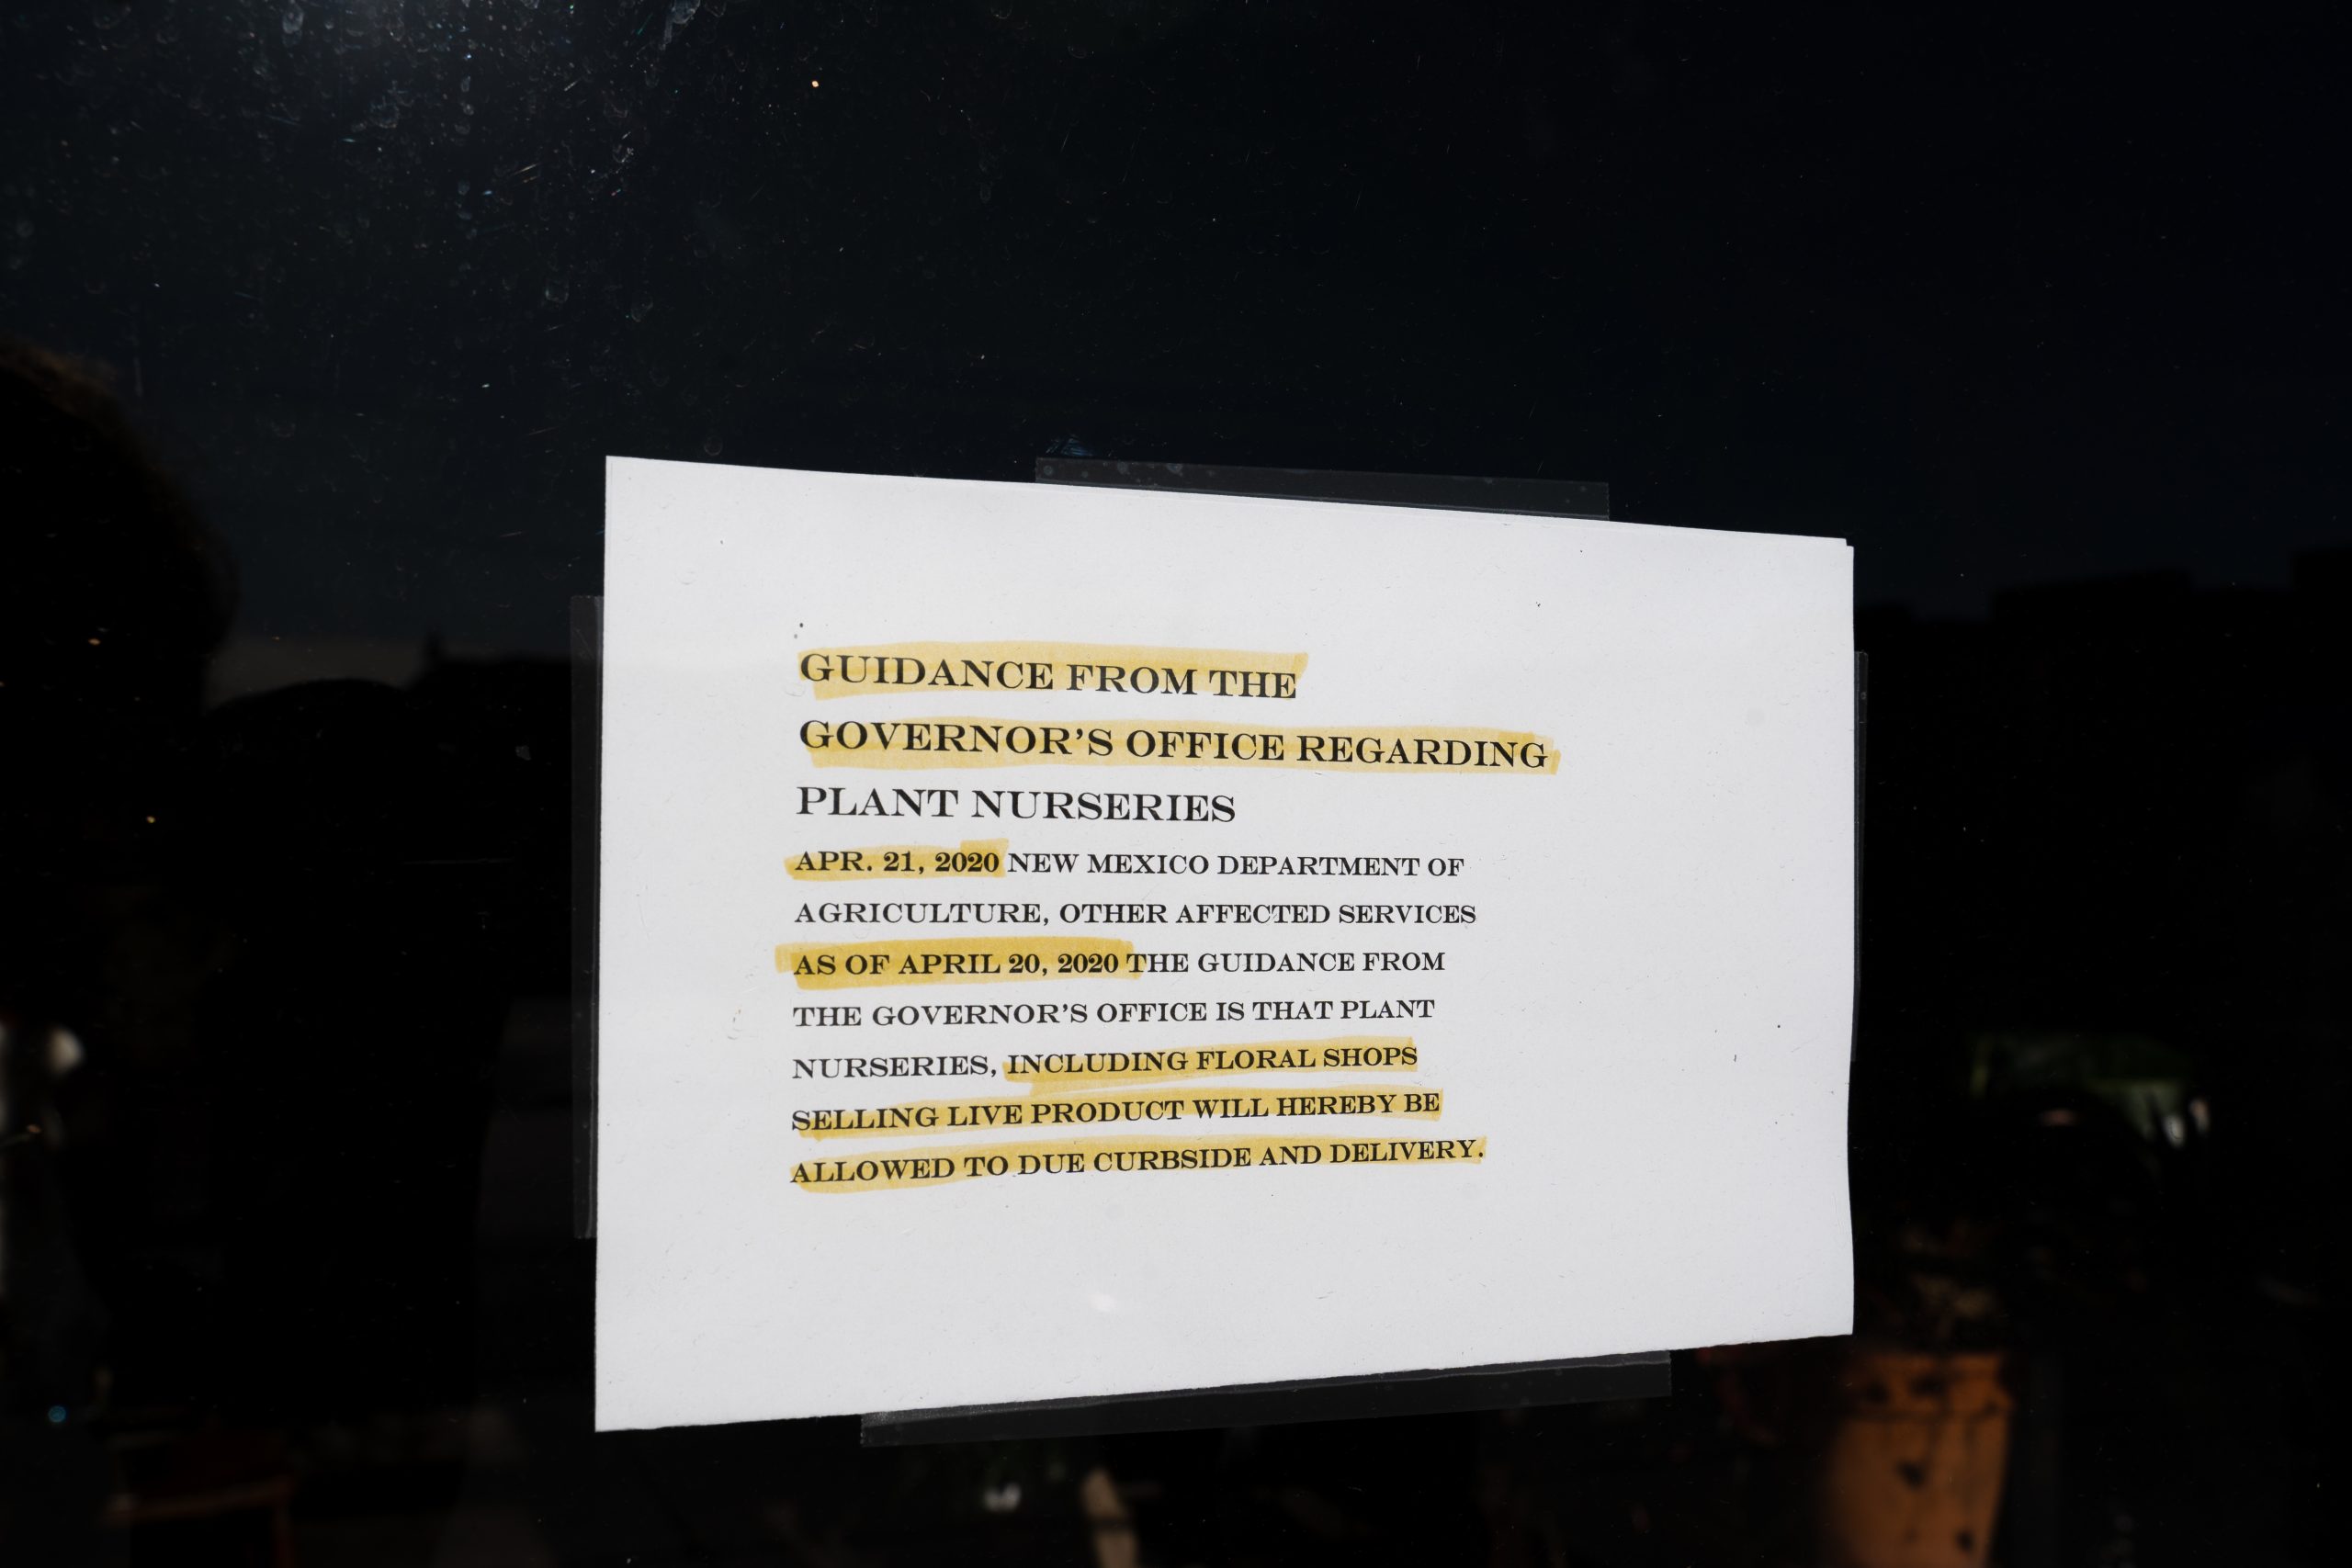 GUIDANCE FROM THE
GOVERNOR'S OFFICE REGARDING
PLANT NURSERIES
APR. 21, 2020 NEW MEXICO DEPARTMENT OF
AGRICULTURE, OTHER AFFECTED SERVICES
AS OF APRIL 20, 2020 THE GUIDANCE FROM
THE GOVERNOR'S OFFICE IS THAT PLANT
NURSERIES, INCLUDING FLORAL SHOPS
SELLING LIVE PRODUCT WILL HEREBY BE
ALLOWED TO DUE CURBSIDE AND DELIVERY.